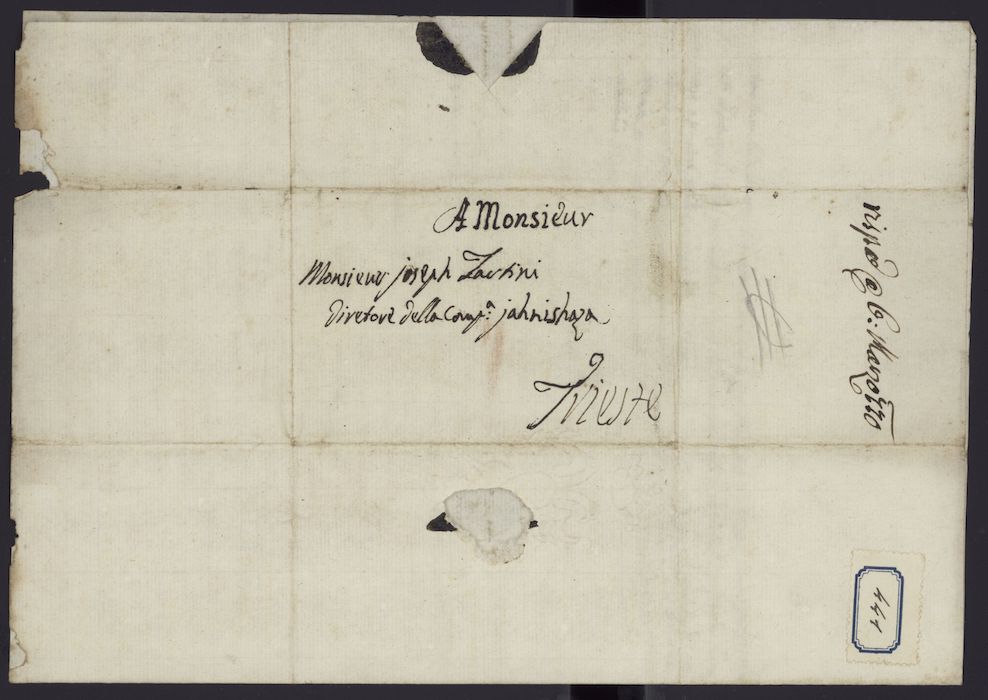 A Monsieur
Monsieur joseph Tartini
Diretore della Comp.ª jahnishaza
Trieste
rispo @ 6: Marzo
441